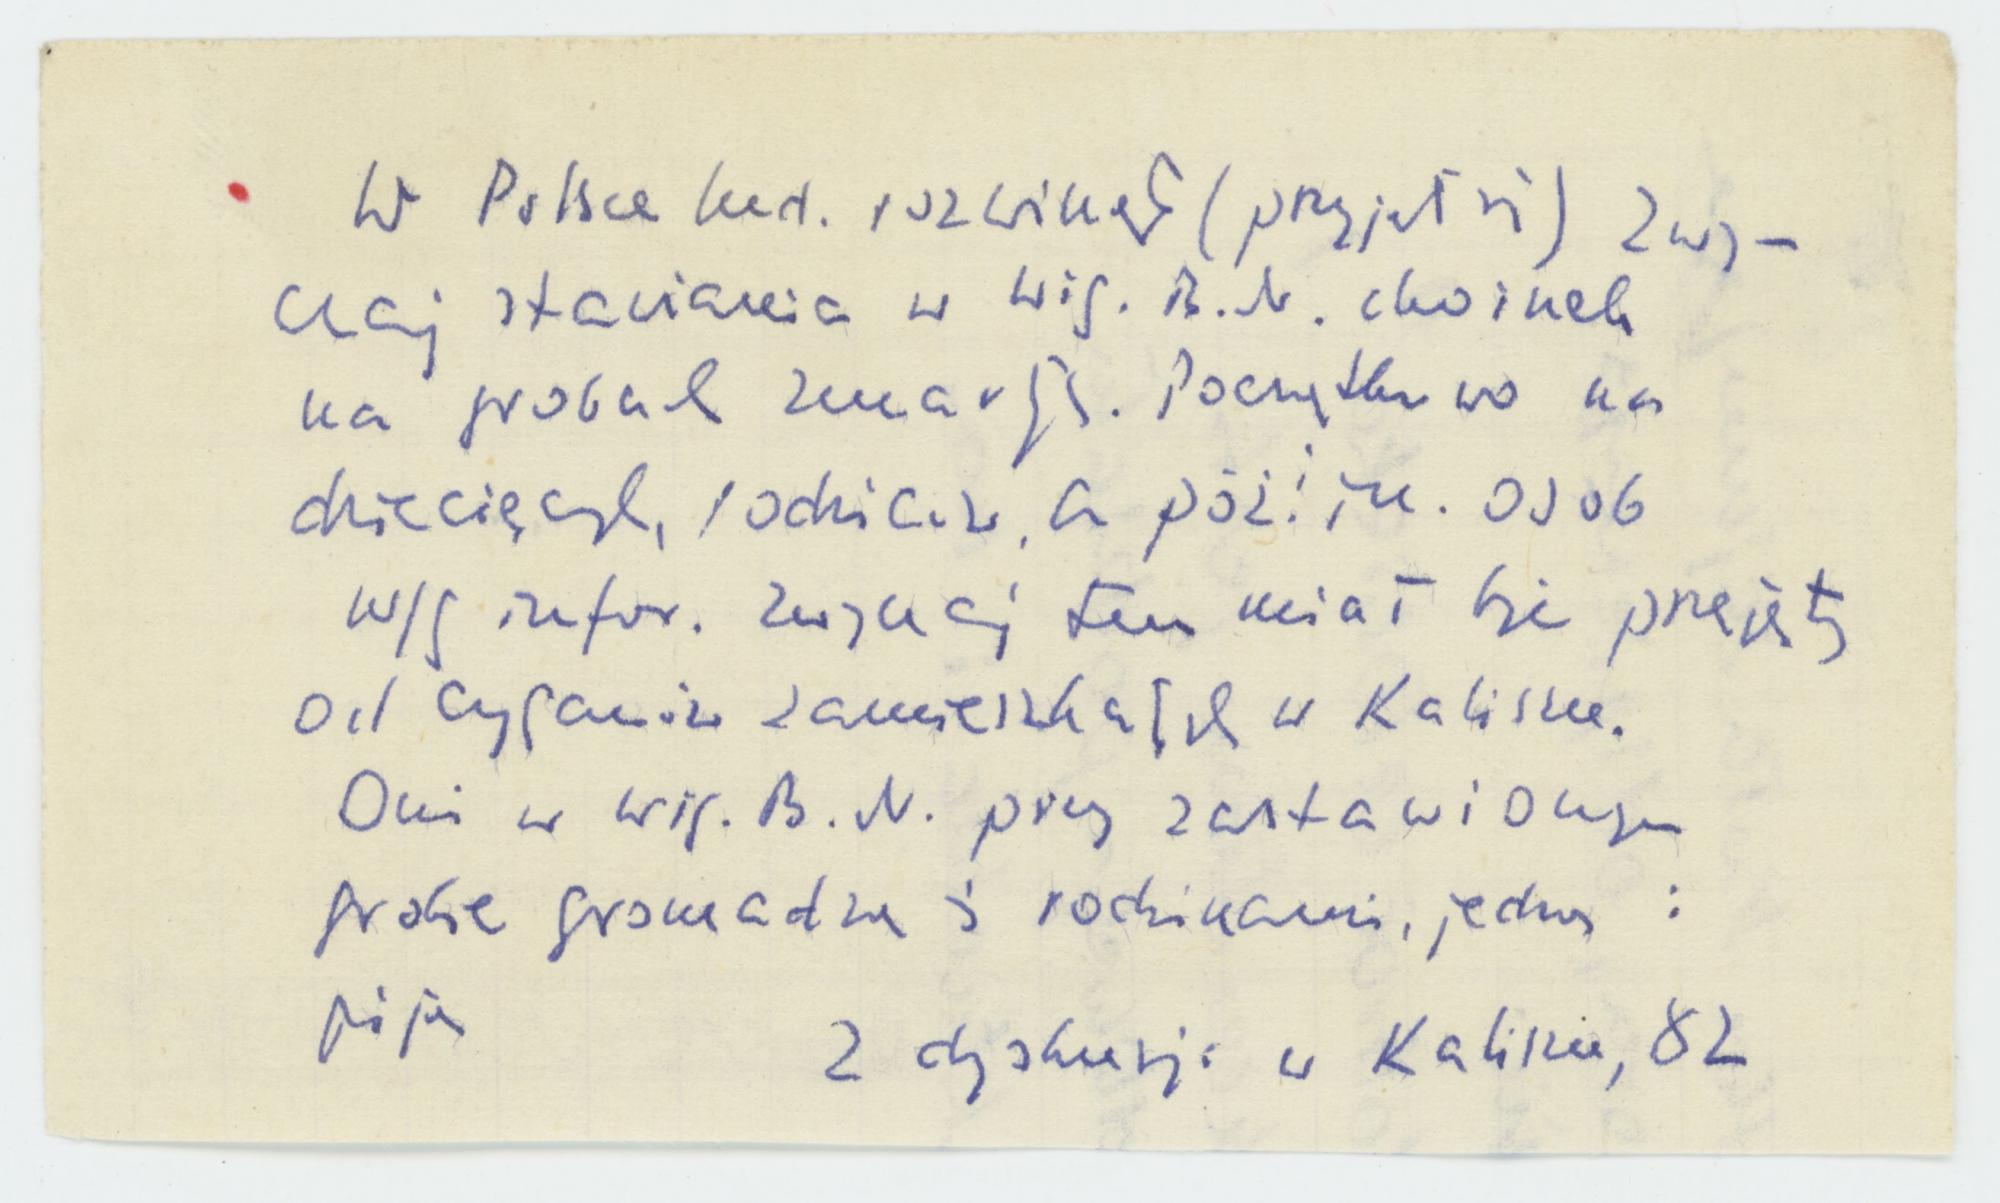 W Polsce kud. rozwinął (przyjął się) zwy-
czaj stawiania w wig. B. N. choinek
na grobach zmarłych. Początkowo na
dziecięcych, rodziców, a póź. in. osób
W/g infor. zwyczaj ten miał być przejęty
od cyganów zamieszkałych w Kaliszu.
Oni w wig. B. N. przy zastawionym
grobie gromadzą się rodzinami, jedzą i
piją
Z dyskusji w Kaliszu, 82